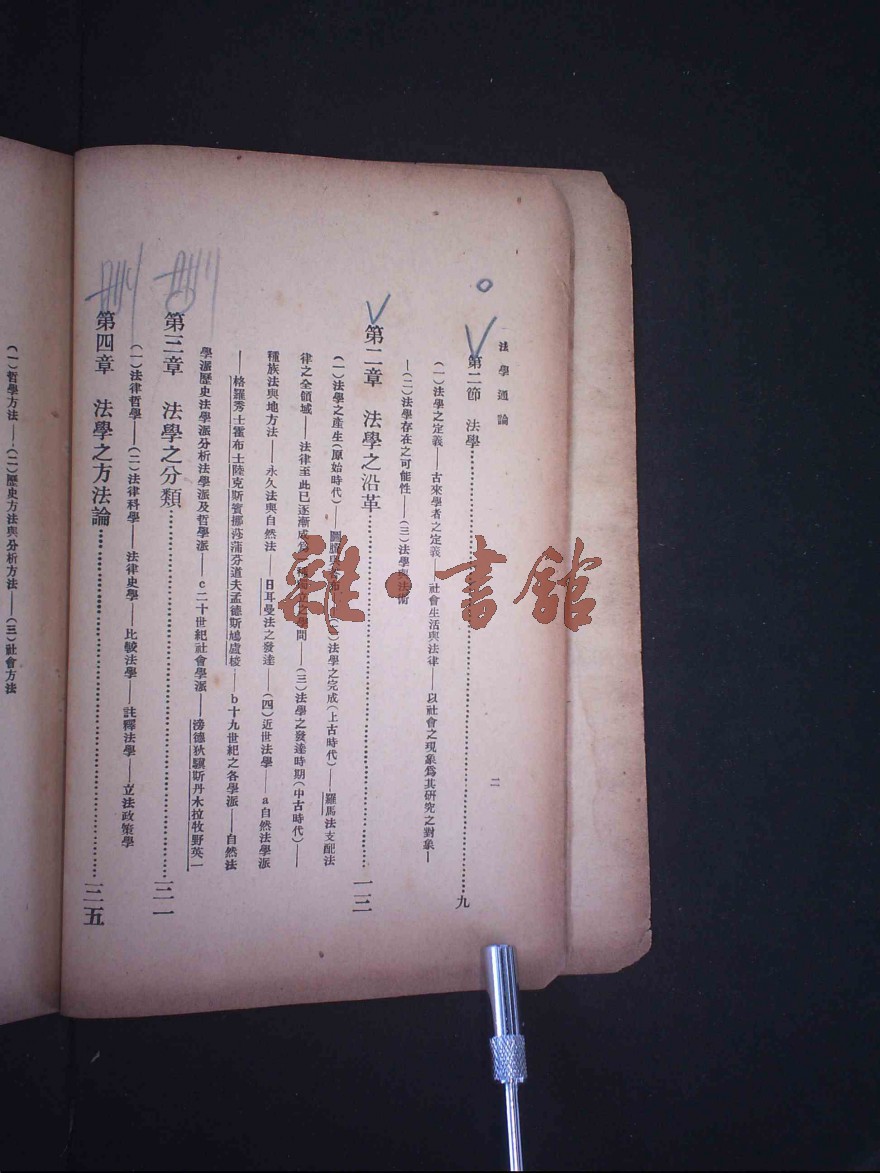 法學通論
二
第二節 法學……九
(一)法學之定義——古來學者之定義——社會生活與法律——以社會之現象爲其研究之對象—
—(二)法學存在之可能性——(三)法學與法術
第二章 法學之沿革……一三
(一)法學之產生(原始時代)——圖騰與——(二)法學之完成(上古時代)——羅馬法支配法
律之全領域——法律至此已逐漸成爲一種獨立之學問——(三)法學之發達時期(中古時代)——
種族法與地方法——永久法與自然法——日耳曼法之發達——(四)近世法學——a自然法學派
——格羅秀士霍布士陸克斯賓挪莎蒲芬道夫孟德斯鳩盧梭——b十九世紀之各學派——自然法
學派歷史法學派分析法學派及哲學派——c二十世紀社會學派——滂德狄驥斯丹木拉牧野英一
第三章 法學之分類……三一
(一)法律哲學——(二)法律科學——法律史學——比較法學——註釋法學——立法政策學
第四章 法學之方法論……三五
(一)哲學方法——(二)歷史方法與分析方法——(三)社會方法
雜·書館